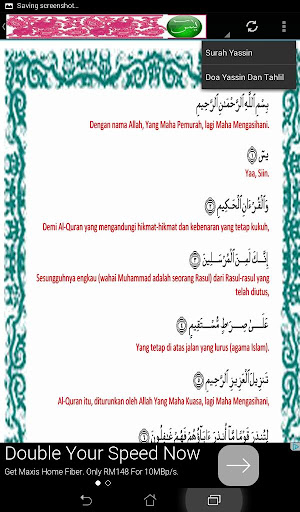 Saving screenshot...
يس
Surah Yassin
Doa Yassin Dan Tahlil
بِسْمِ ٱللَّهِ ٱلرَّحْمَـٰنِ ٱلرَّحِيمِ
Dengan nama Allah, Yang Maha Pemurah, lagi Maha Mengasihani.
يسٓ ﴿١﴾
Yaa, Siin.
وَٱلْقُرْءَانِ ٱلْحَكِيمِ ﴿٢﴾
Demi Al-Quran yang mengandungi hikmat-hikmat dan kebenaran yang tetap kukuh,
إِنَّكَ لَمِنَ ٱلْمُرْسَلِينَ ﴿٣﴾
Sesungguhnya engkau (wahai Muhammad adalah seorang Rasul) dari Rasul-rasul yang
telah diutus,
عَلَىٰ صِرَٰطٍ مُّسْتَقِيمٍ ﴿٤﴾
Yang tetap di atas jalan yang lurus (agama Islam).
تَنزِيلَ ٱلْعَزِيزِ ٱلرَّحِيمِ
Al-Quran itu, diturunkan oleh Allah Yang Maha Kuasa, lagi Maha Mengasihani,
لِتُنذِرَ قَوْمًا مَّآ أُنذِرَ ءَابَآؤُهُمْ فَهُمْ غَـٰفِلُونَ
Double Your Speed Now
Get Maxis Home Fiber. Only RM148 For 10MBp/s.